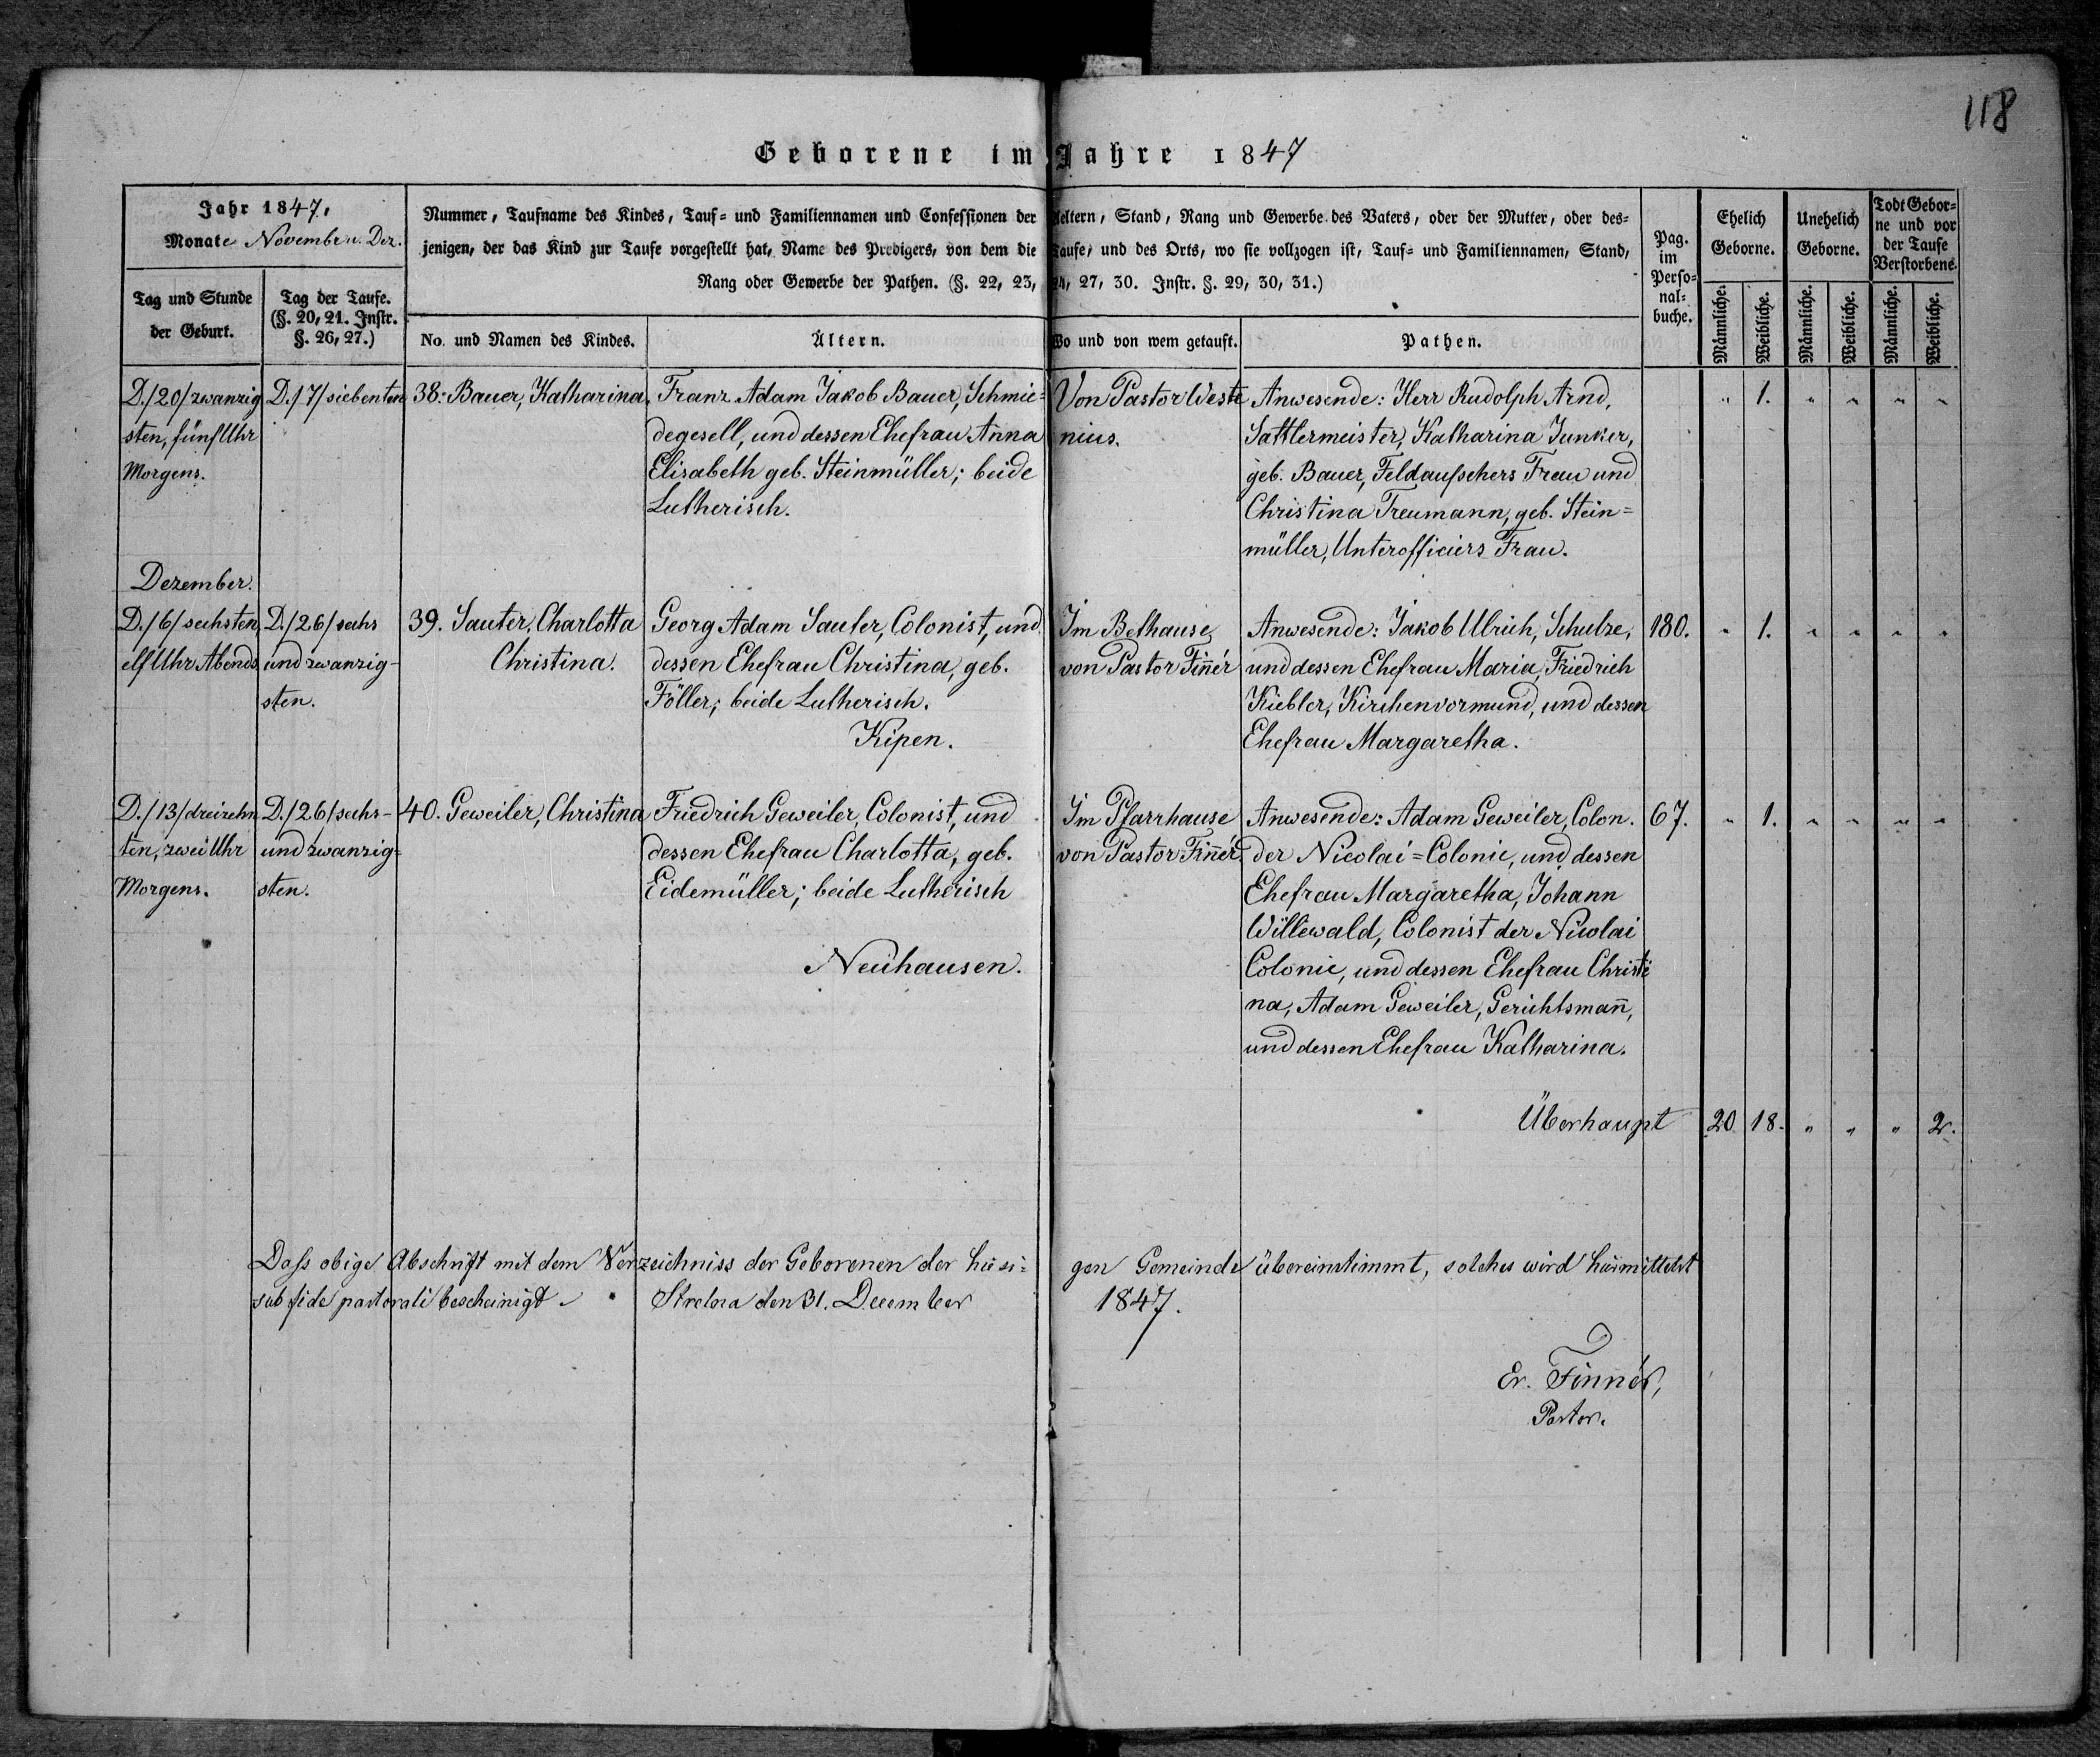 118
Geborene im Jahre 1847
Jahr 1847,
Monate November u. Dez.
Tag und Stunde
der Geburt.
Tag der Taufe.
(§. 20, 21. Instr.
§. 26, 27.)
Nummer, Taufname des Kindes, Tauf- und Familiennamen und Confessionen der Aeltern, Stand, Rang und Gewerbe des Vaters, oder der Mutter, oder des-
jenigen, der das Kind zur Taufe vorgestellt hat, Name des Predigers, von dem die Taufe, und des Orts, wo sie vollzogen ist, Tauf- und Familiennamen, Stand,
Rang oder Gewerbe der Pathen. (§. 22, 23, 24, 27, 30. Instr. §. 29, 30, 31.)
No. und Namen des Kindes.
Ältern.
Wo und von wem getauft.
Pathen.
Pag.
im
Perso-
nal-
buche.
Ehelich
Geborne.
Unehelich
Geborne.
Todt Gebor-
ne und vor
der Taufe
Verstorbene.
Männliche.
Weibliche.
Männliche.
Weibliche.
Männliche.
Weibliche.
D./20/zwanzig
sten, fünf Uhr
Morgens.
D./7/siebenten
38. Bauer, Katharina.
Franz Adam Jakob Bauer, Schmie=
degesell, und dessen Ehefrau Anna
Elisabeth geb. Steinmüller; beide
Lutherisch.
Von Pastor Weste
nius.
Anwesende: Herr Rudolph Arnd,
Sattlermeister, Katharina Junker,
geb. Bauer, Feldaufsehers Frau und
Christina Treumann, geb. Stein=
müller, Unterofficiers Frau.
" 1. " " " "
Dezember.
D./6/sechsten,
elf Uhr Abends
D./26/sechs
und zwanzig-
sten.
39. Sauter, Charlotta
Christina.
Georg Adam Sauter, Colonist, und
dessen Ehefrau Christina, geb.
Föller; beide Lutherisch.
Kipen.
Im Bethause,
von Pastor Fin̄ér
Anwesende: Jakob Ulrich, Schulze,
und dessen Ehefrau Maria, Friedrich
Kiebler, Kirchenvormund, und dessen
Ehefrau Margaretha.
180. " 1. " " " "
D./13/dreizehn
ten, zwei Uhr
Morgens.
D./26/sechs-
und zwanzig=
sten.
40. Geweiler, Christina
Friedrich Geweiler, Colonist, und
dessen Ehefrau Charlotta, geb.
Eidemüller; beide Lutherisch
Neuhausen.
Im Pfarrhause
von Pastor Fin̄ér
Anwesende: Adam Geweiler, Colon.
der Nicolai=Colonie, und dessen
Ehefrau Margaretha, Johann
Willewald, Colonist der Nicolai
Colonie, und dessen Ehefrau Christi
na, Adam Geweiler, Gerichtsman̄,
und dessen Ehefrau Katharina.
67. " 1. " " " "
Überhaupt 20 18. " " " 2.
Dass obige Abschrift mit dem Verzeichniss der Geborenen der hiesi=gen Gemeinde übereinstimmt, solches wird hiermittelst
sub fide pastorali bescheinigt. Strelna den 31. December 1847.
Er. Finnér,
Pastor.